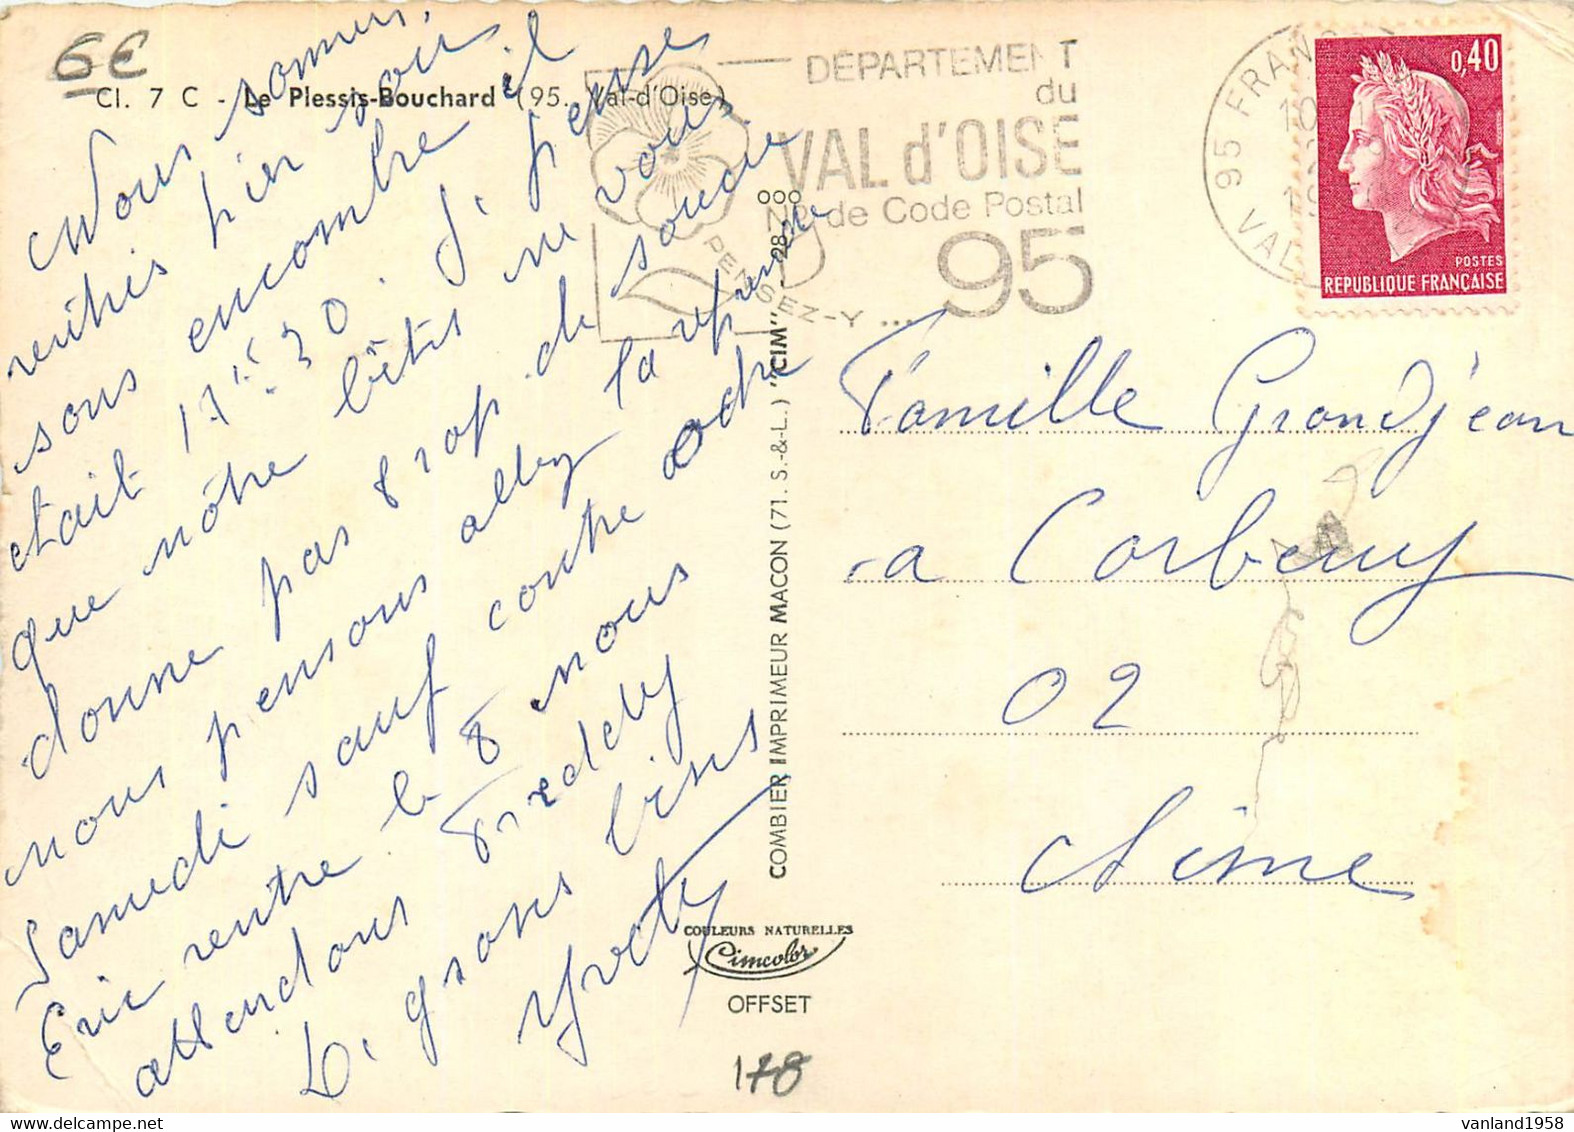 6€
Cl. 7 C - Le Plessis-Bouchard (95. Val-d'Oise)
Nous sommes
rentrés hier soir
sans encombre il
était 17 h 30. J. pense
que nôtre bêtis ne vous
donne pas trop de soucie
nous pensons aller la reprendre
Samedi sauf contre ordre
Eric rentre le 8 nous
attendons Freddy
L. grsons bises
Yvette
DÉPARTEMENT
du
VAL d'OISE
No de Code Postal
95
PENSEZ-Y ....
95 FRAN
VAL
0,40
POSTES
REPUBLIQUE FRANÇAISE
COMBIER IMPRIMEUR MACON (71. S.-&-L.) "CIM"
COULEURS NATURELLES
Cimcolor
OFFSET
178
Famille Grandjean
a Corbeny
02
Aisne
vanland1958